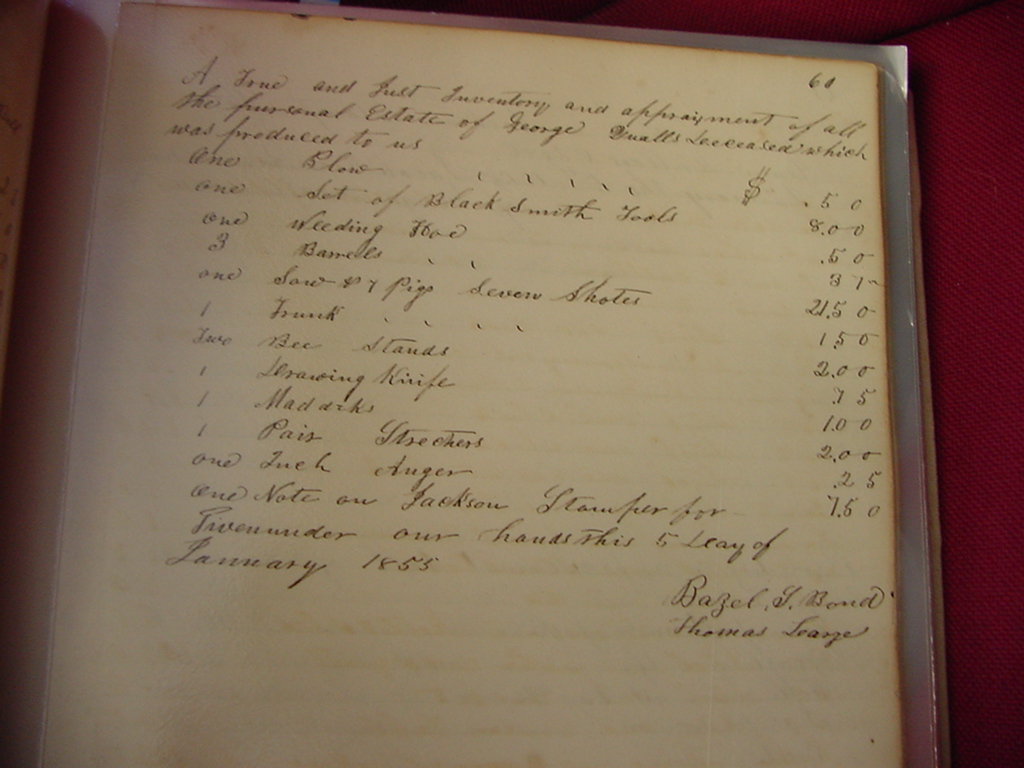 60
A True and Just Inventory and appraiyment of all
the pursonal Estate of George Qualls Deceased which
was produced to us
One Plow $ .50
one Set of Black Smith Tools 8.00
one Weeding Hoe .50
3 Barrels 37
one Sow & 7 Pigs Seven Shotes 21.50
1 Trunk 1.50
Two Bee Stands 2.00
1 Drawing Knife .75
1 Madarks 1.00
1 Pair Strechers 2.00
one Inch Auger .25
one Note on Jackson Stamper for 7.50
Given under our hands this 5 day of
January 1855
Bazel. J. Bond.
Thomas